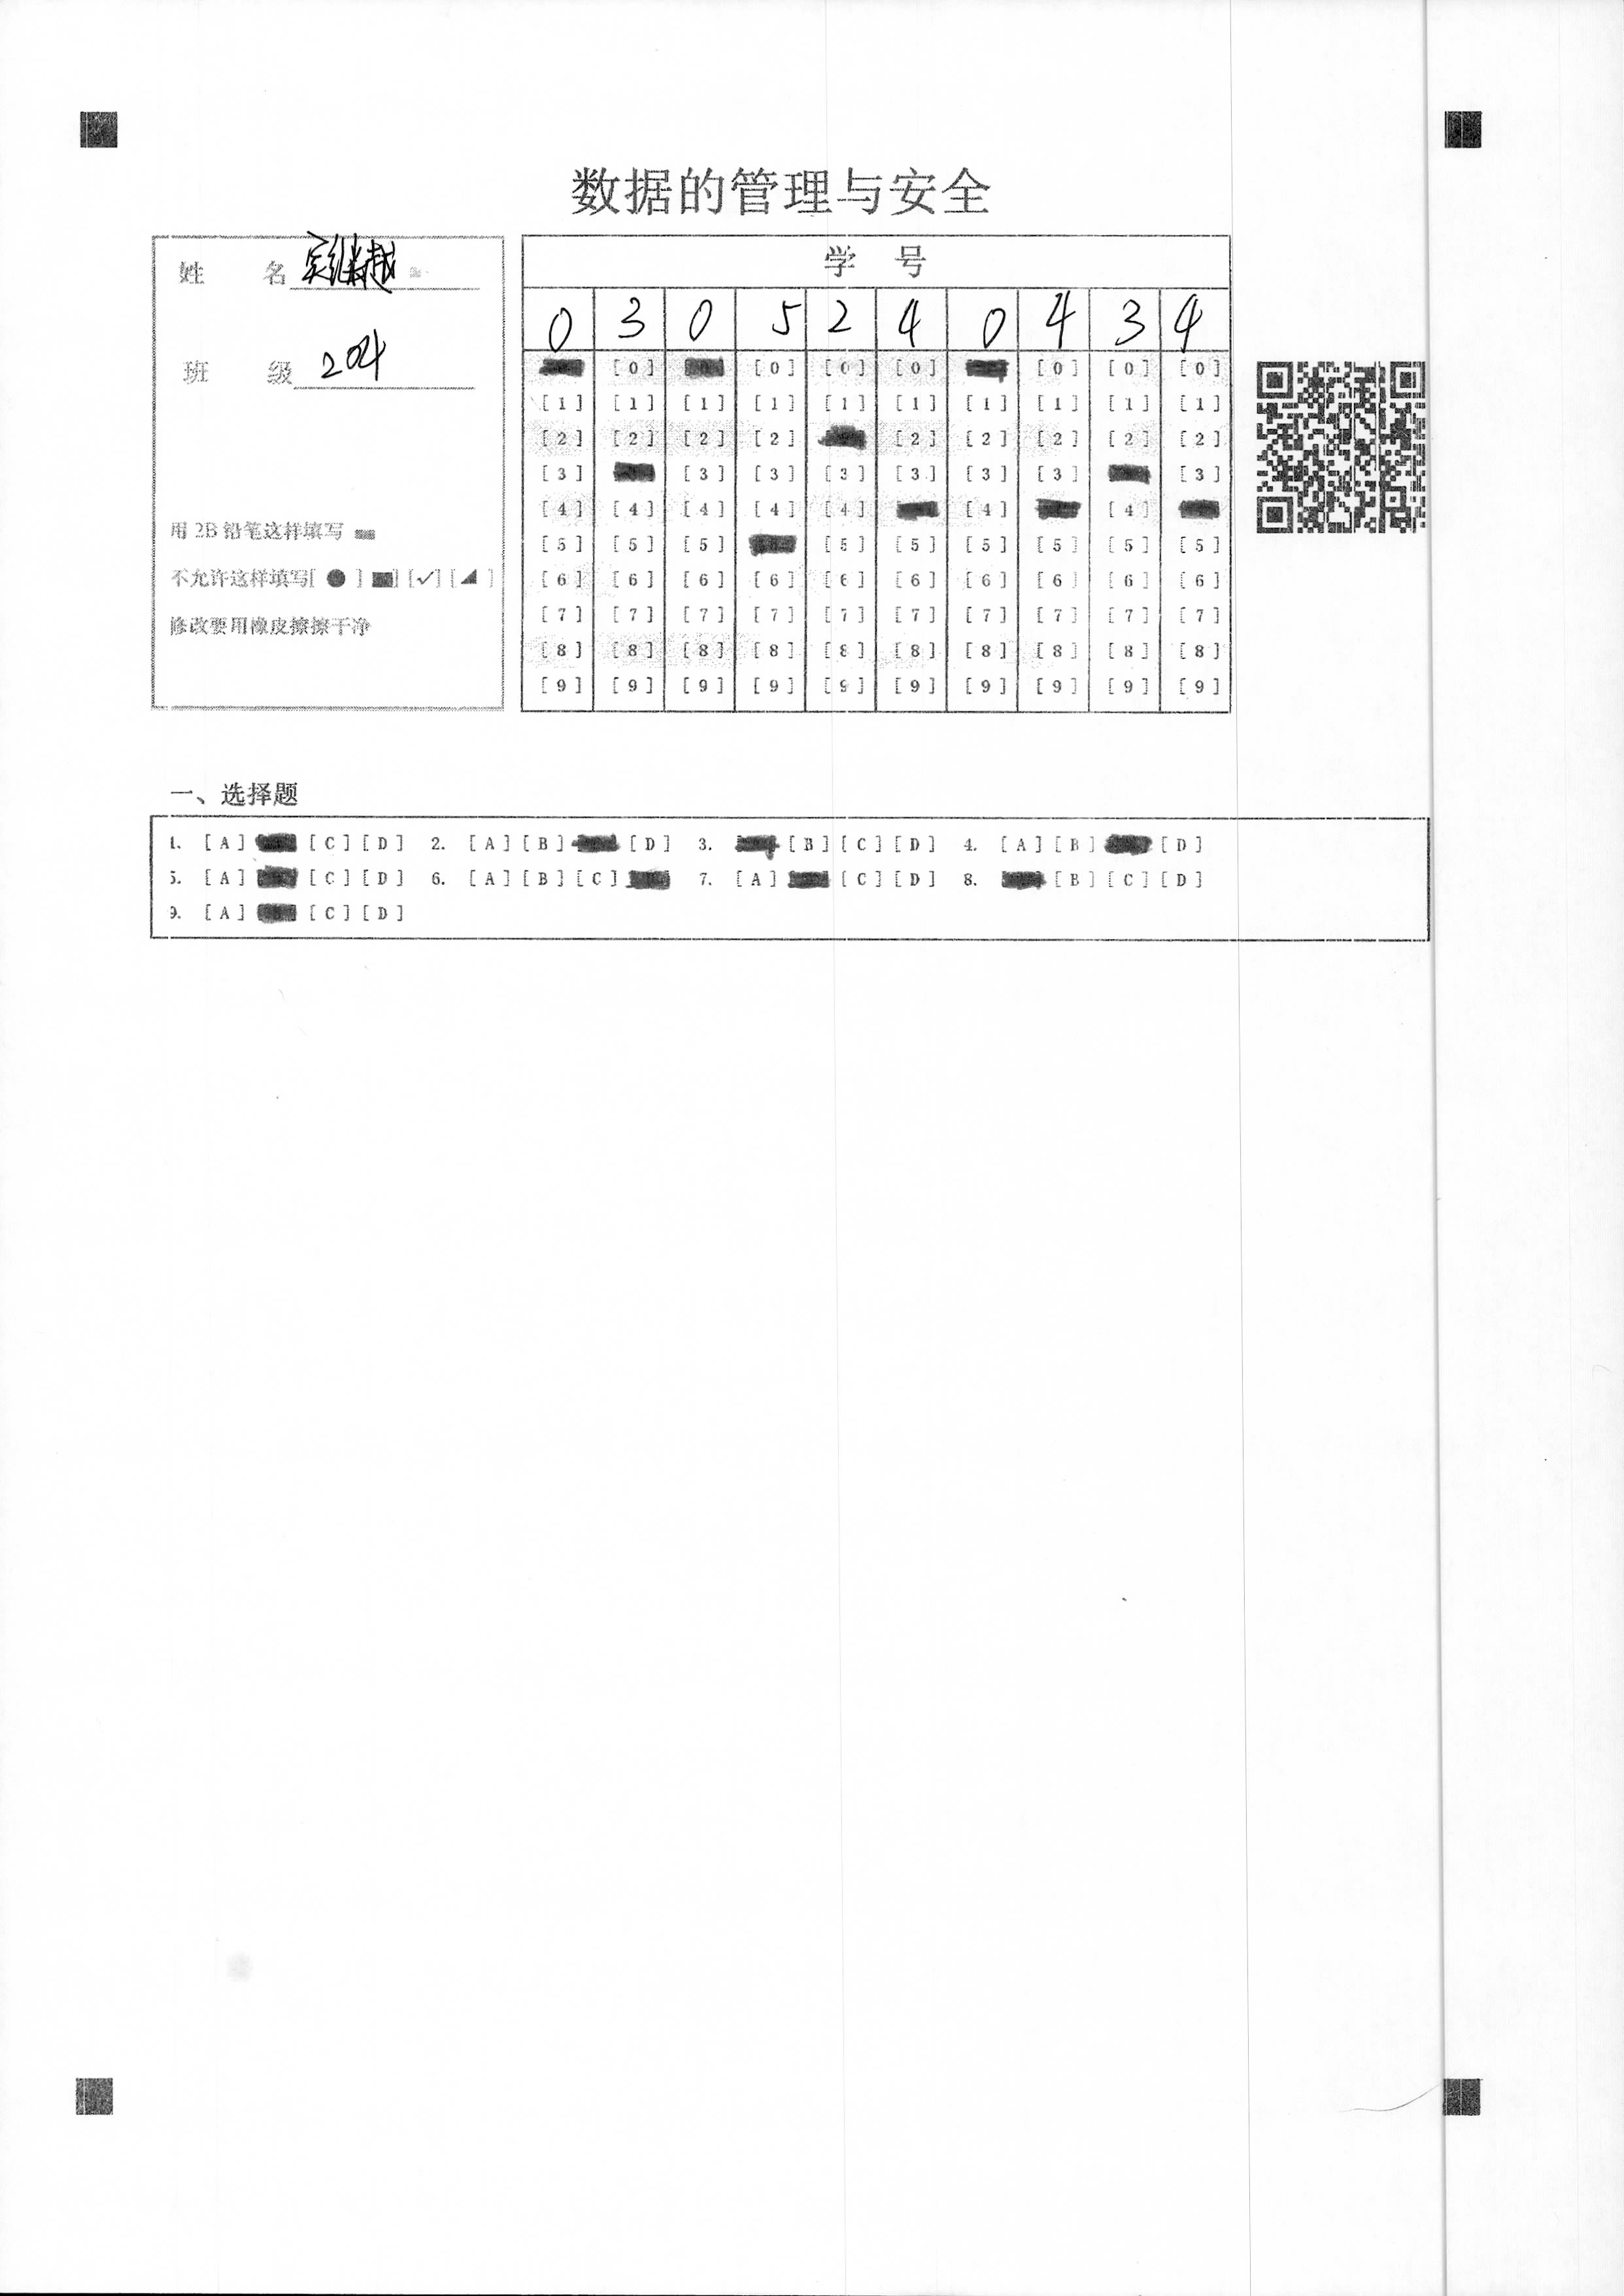 数据的管理与安全
姓 名
班 级 204
用 2B 铅笔这样填写
不允许这样填写[ ● ] ■] [✓] [◢ ]
修改要用橡皮擦擦干净
学 号
0 3 0 5 2 4 0 4 3 4
[0] [0] [0] [0] [0] [0] [0]
[1] [1] [1] [1] [1] [1] [1] [1] [1] [1]
[2] [2] [2] [2] [2] [2] [2] [2] [2]
[3] [3] [3] [3] [3] [3] [3] [3]
[4] [4] [4] [4] [4] [4] [4]
[5] [5] [5] [5] [5] [5] [5] [5] [5]
[6] [6] [6] [6] [6] [6] [6] [6] [6] [6]
[7] [7] [7] [7] [7] [7] [7] [7] [7] [7]
[8] [8] [8] [8] [8] [8] [8] [8] [8] [8]
[9] [9] [9] [9] [9] [9] [9] [9] [9] [9]
一、选择题
1. [A] [C] [D] 2. [A] [B] [D] 3. [B] [C] [D] 4. [A] [B] [D]
5. [A] [C] [D] 6. [A] [B] [C] 7. [A] [C] [D] 8. [B] [C] [D]
9. [A] [C] [D]